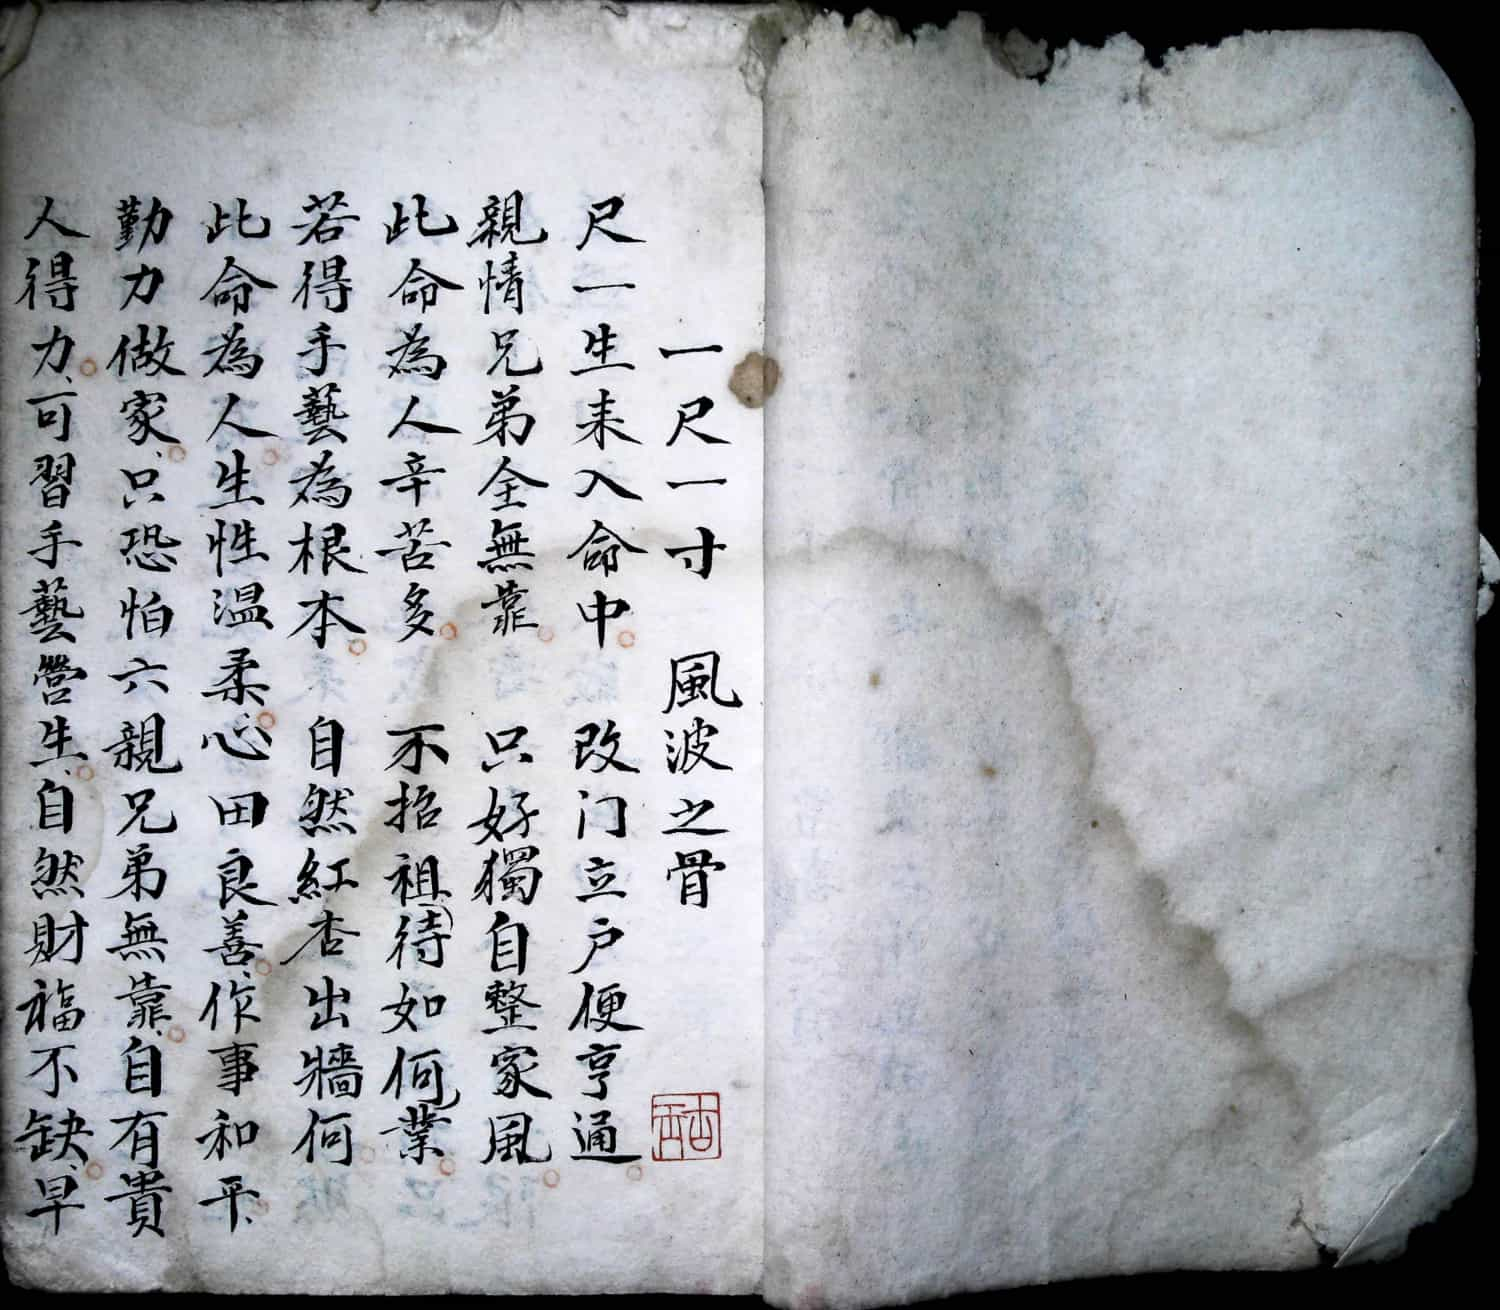 一尺一寸 風波之骨
尺一生未入命中 改门立户便亨通
親情兄弟全無靠 只好獨自整家風
此命為人辛苦多 不招祖待如何業
若得手藝為根本 自然紅杏出牆何
此命為人生性温柔心田良善作事和平
勤力做家只恐怕六親兄弟無靠自有貴
人得力可習手藝營生自然財福不缺早